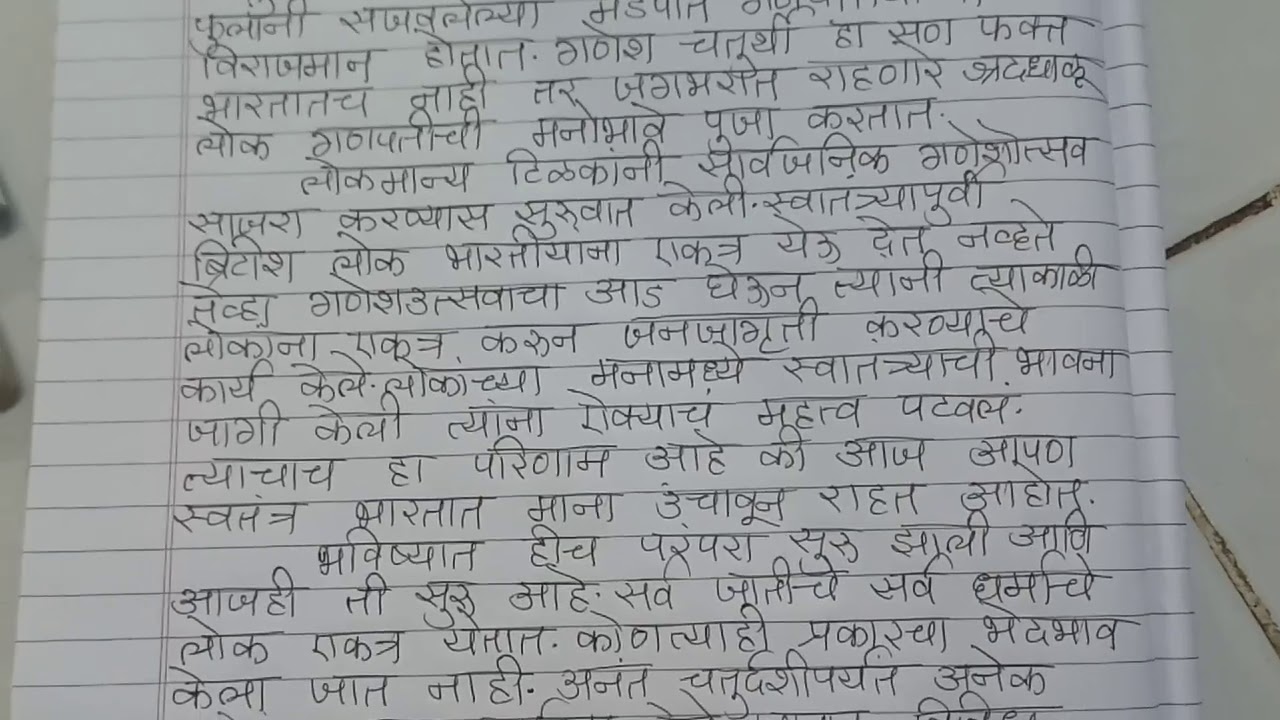 फुलांनी सजवलेल्या मंडपात
विराजमान होतात. गणेश चतुर्थी हा सण फक्त
भारतातच नाही तर जगभरात राहणारे श्रद्धाळू
लोक गणपतीची मनोभावे पुजा करतात.
लोकमान्य टिळकांनी सार्वजनिक गणेशोत्सव
साजरा करण्यास सुरुवात केली. स्वातंत्र्यापुर्वी
ब्रिटीश लोक भारतीयाना एकत्र येऊ देत नव्हते
तेव्हा गणेशउत्सवाचा आड घेऊन त्यानी त्याकाळी
लोकांना एकत्र करून जनजागृती करण्याचे
कार्य केले. लोकांच्या मनामध्ये स्वातंत्र्याची भावना
जागी केली त्यांना ऐक्याचं महत्व पटवलं.
त्याचाच हा परिणाम आहे की आज आपण
स्वतंत्र भारतात माना उंचावून राहत आहोत.
भविष्यात हीच परंपरा सुरु झाली आणि
आजही ती सुरु आहे. सर्व जातीचे सर्व धर्माचे
लोक एकत्र येतात. कोणत्याही प्रकारचा भेदभाव
केला जात नाही. अनंत चतुर्दशीपर्यंत अनेक